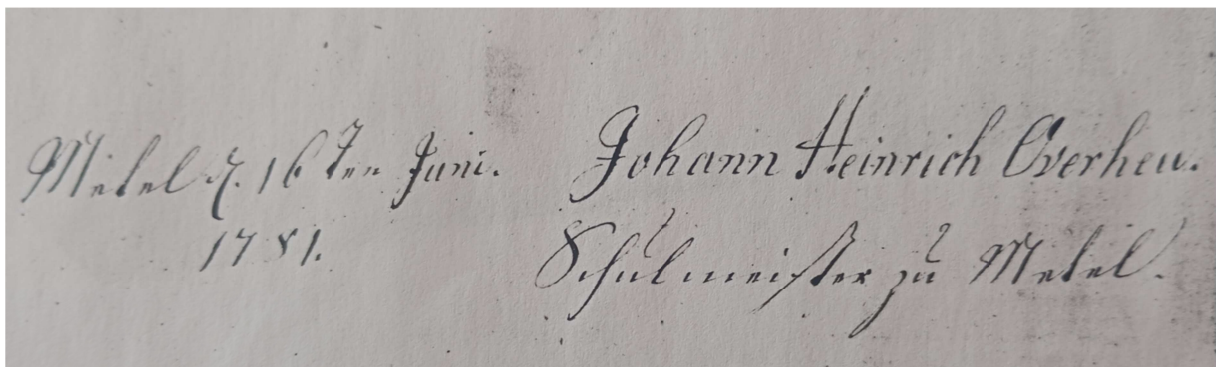 Metel d. 16ten Juni. Johann Heinrich Overheu.
1781. Schulmeister zu Metel.